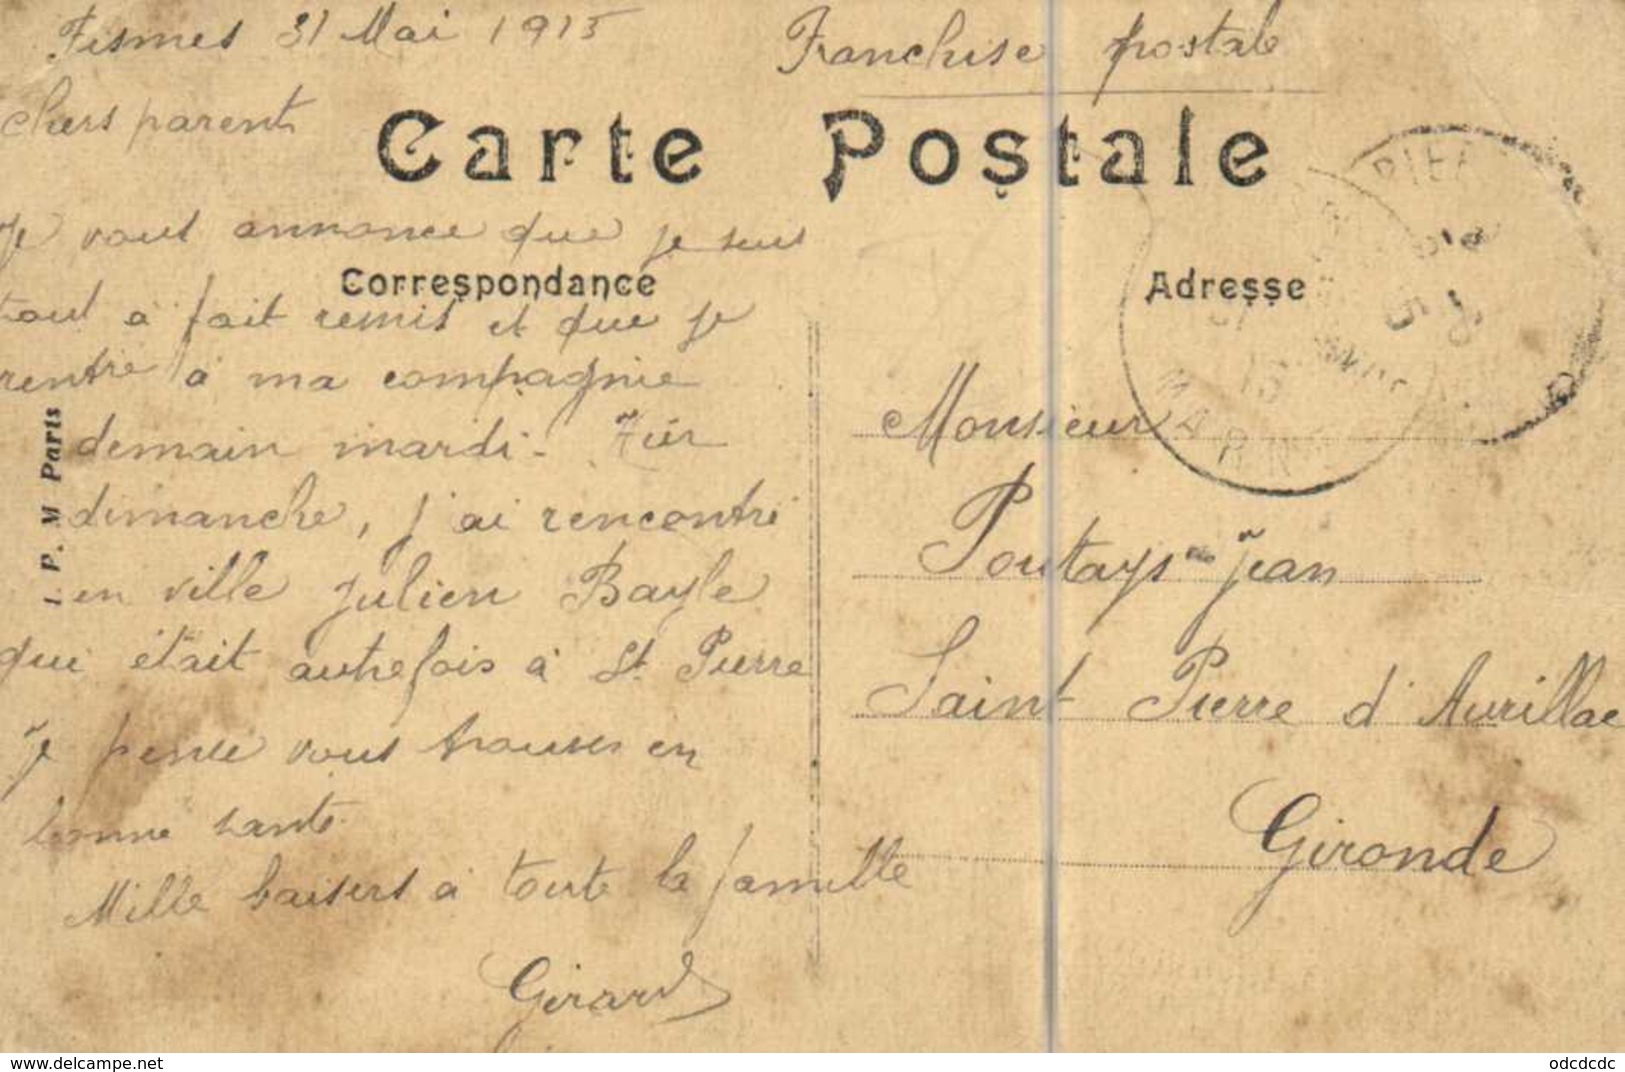 Fismes 31 Mai 1915
Franchise postale
Chers parents
Carte Postale
Je vous annonce que je suis
Correspondance
tout à fait remis et que je
rentre à ma compagnie
demain mardi. Hier
dimanche, j'ai rencontré
en ville Julien Bayle
qui était autrefois à St Pierre
Je pense vous trouver en
bonne santé.
Mille baisers à toute la famille
Girard
I. P. M Paris
Adresse
Monsieur
Poutays Jean
Saint Pierre d'Aurillac
Gironde
MARNE
delcampe.net
odcdcdc